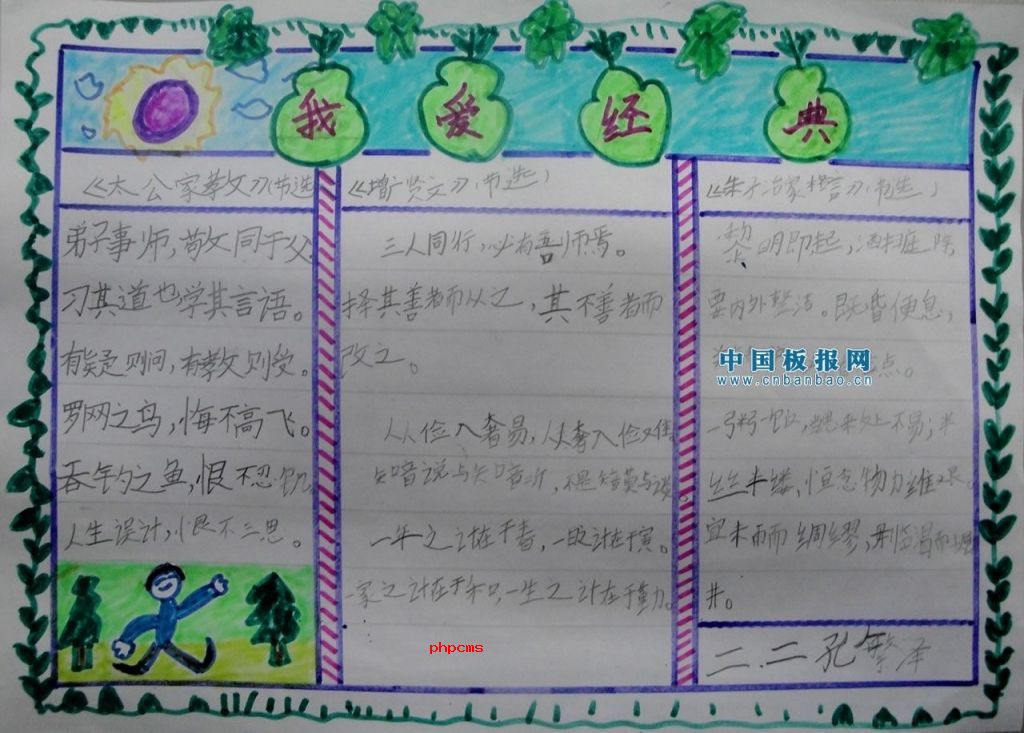 我爱经典
《太公家教》(节选
弟子事师，敬同于父，
习其道也，学其言语。
有疑则问，有教则受。
罗网之鸟，悔不高飞。
吞钓之鱼，恨不忍饥。
人生误计，恨不三思。
《增广贤文》(节选)
三人同行，必有吾师焉。
择其善者而从之，其不善者而
改之。
从俭入奢易，从奢入俭难
知音说与知音听，不是知音莫与谈
一年之计在于春，一日之计在于寅。
一家之计在于和，一生之计在于勤。
《朱子治家格言》(节选)
黎明即起，洒扫庭除，
要内外整洁。既昏便息，
点。
一粥一饭，当思来处不易；半
丝半缕，恒念物力维艰。
宜未雨而绸缪，毋临渴而掘
井。
二.二孔繁泽
中国板报网
www.cnbanbao.cn
phpcms